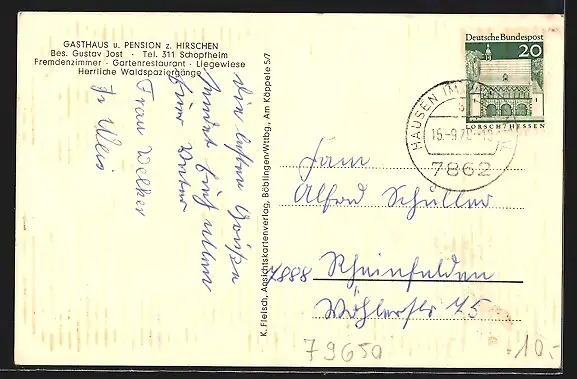 GASTHAUS u. PENSION z. HIRSCHEN
Bes. Gustav Jost · Tel. 311 Schopfheim
Fremdenzimmer · Gartenrestaurant · Liegewiese
Herrliche Waldspaziergänge
Die besten Grüße
sendet Euch allen
Eure Vater
Frau Welker
K. Fleisch, Ansichtskartenverlag, Böblingen-Wttbg., Am Käppele 5/7
Deutsche Bundespost
20
LORSCH/HESSEN
HAUSEN IM
15.-9.70
7862
Fam
Alfred Schüller
7888 Rheinfelden
Wöhlerstr 75
79650
10.-